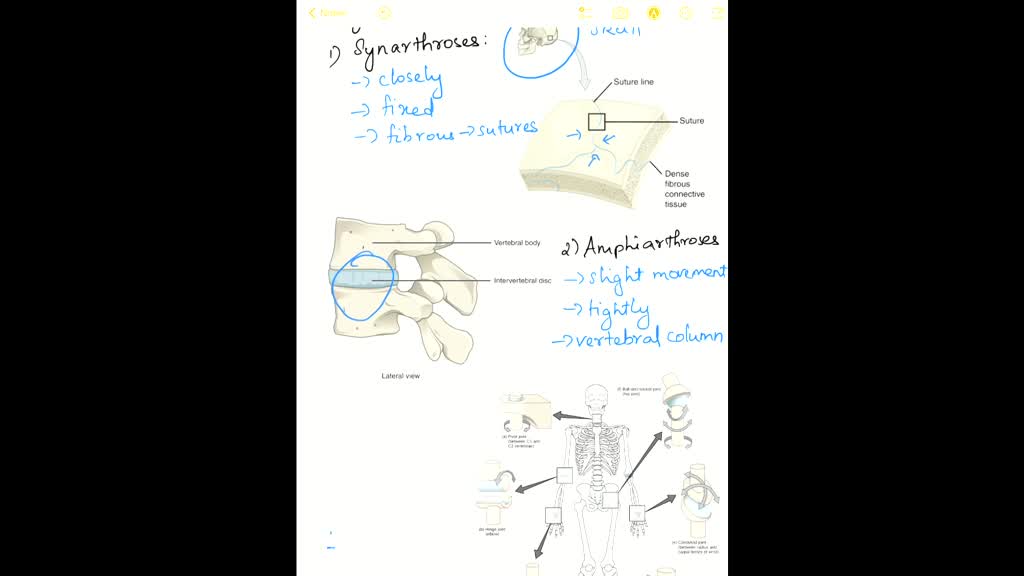 Notes
skull
1) Synarthroses:
-> closely
-> fixed
-> fibrous -> sutures
Suture line
Suture
Dense
fibrous
connective
tissue
Vertebral body
Intervertebral disc
Lateral view
2) Amphiarthroses
-> slight movement
-> tightly
-> vertebral column
(f) Ball-and-socket joint
(hip joint)
(a) Pivot joint
(between C1 and
C2 vertebrae)
(b) Hinge joint
(elbow)
(e) Condyloid joint
(between radius and
carpal bones of wrist)